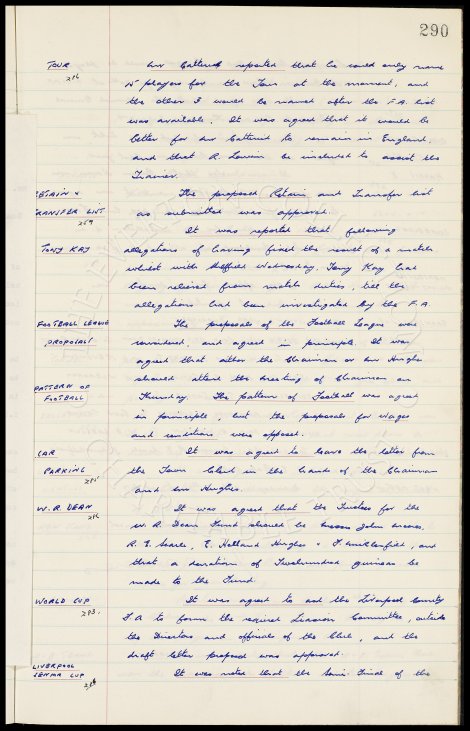 290
TOUR Mr Catterick reported that he could only name
286 15 players for the Tour at the moment, and
the other 3 would be named after the F.A. list
was available. It was agreed that it would be
better for Mr Catterick to remain in England,
and that R. Lewin be included to assist the
Trainer.
RETAIN & The proposed Retain and Transfer list
TRANSFER LIST as submitted was approved.
289 It was reported that following
TONY KAY allegations of having fixed the result of a match
whilst with Sheffield Wednesday, Tony Kay had
been relieved from match duties, till the
allegations had been investigated by the F.A.
FOOTBALL LEAGUE The proposals of the Football League were
PROPOSALS considered, and agreed in principle. It was
agreed that either the Chairman or Mr Hughes
should attend the meeting of Chairmen on
PATTERN OF FOOTBALL Thursday. The pattern of Football was agreed
in principle, but the proposals for wages
and conditions were opposed.
CAR It was agreed to leave the letter from
PARKING the Town Clerk in the hands of the Chairman
285 and Mr Hughes.
W. R. DEAN It was agreed that the Trustees for the
286 W. R. Dean Fund should be Messrs John
R. E. Searle, E. Holland Hughes & F. Micklesfield, and
that a donation of Twohundred guineas be
made to the Fund.
WORLD CUP It was agreed to ask the Liverpool County
283. F A to form the required Liaison Committee, outside
the Directors and officials of the Club, and the
draft letter proposed was approved.
LIVERPOOL SENIOR CUP It was noted that the Semi-Final of the
288